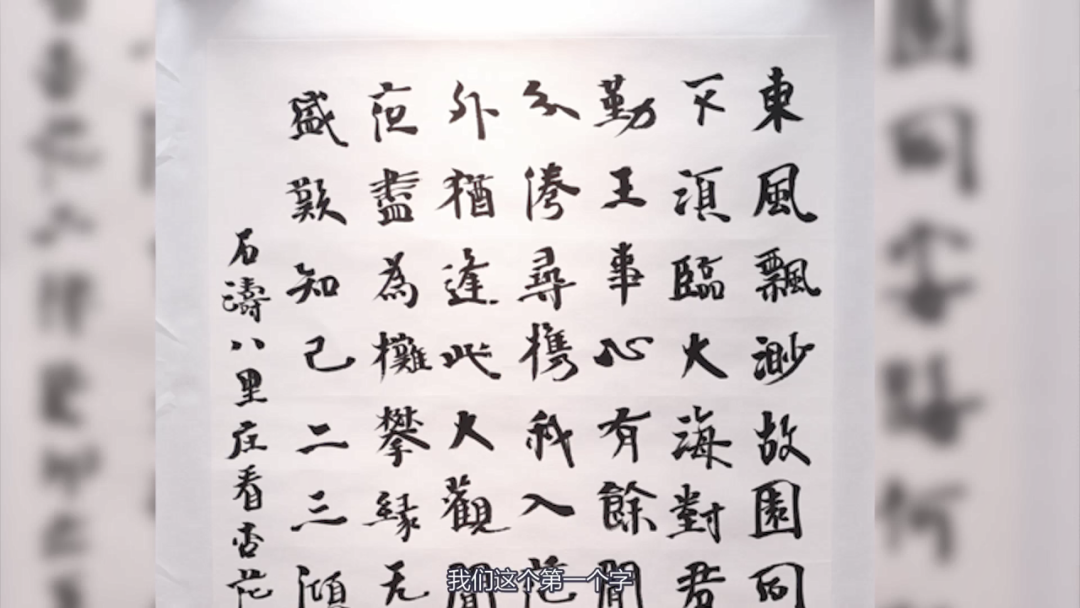 東風飄渺故園
下須臨大海對君
勤王事心有餘閒
倦尋携我入花
外猶逢此大觀聞
盡為攀緣无
盛歎知己二三
石濤八里庄看杏花
我们这个第一个字